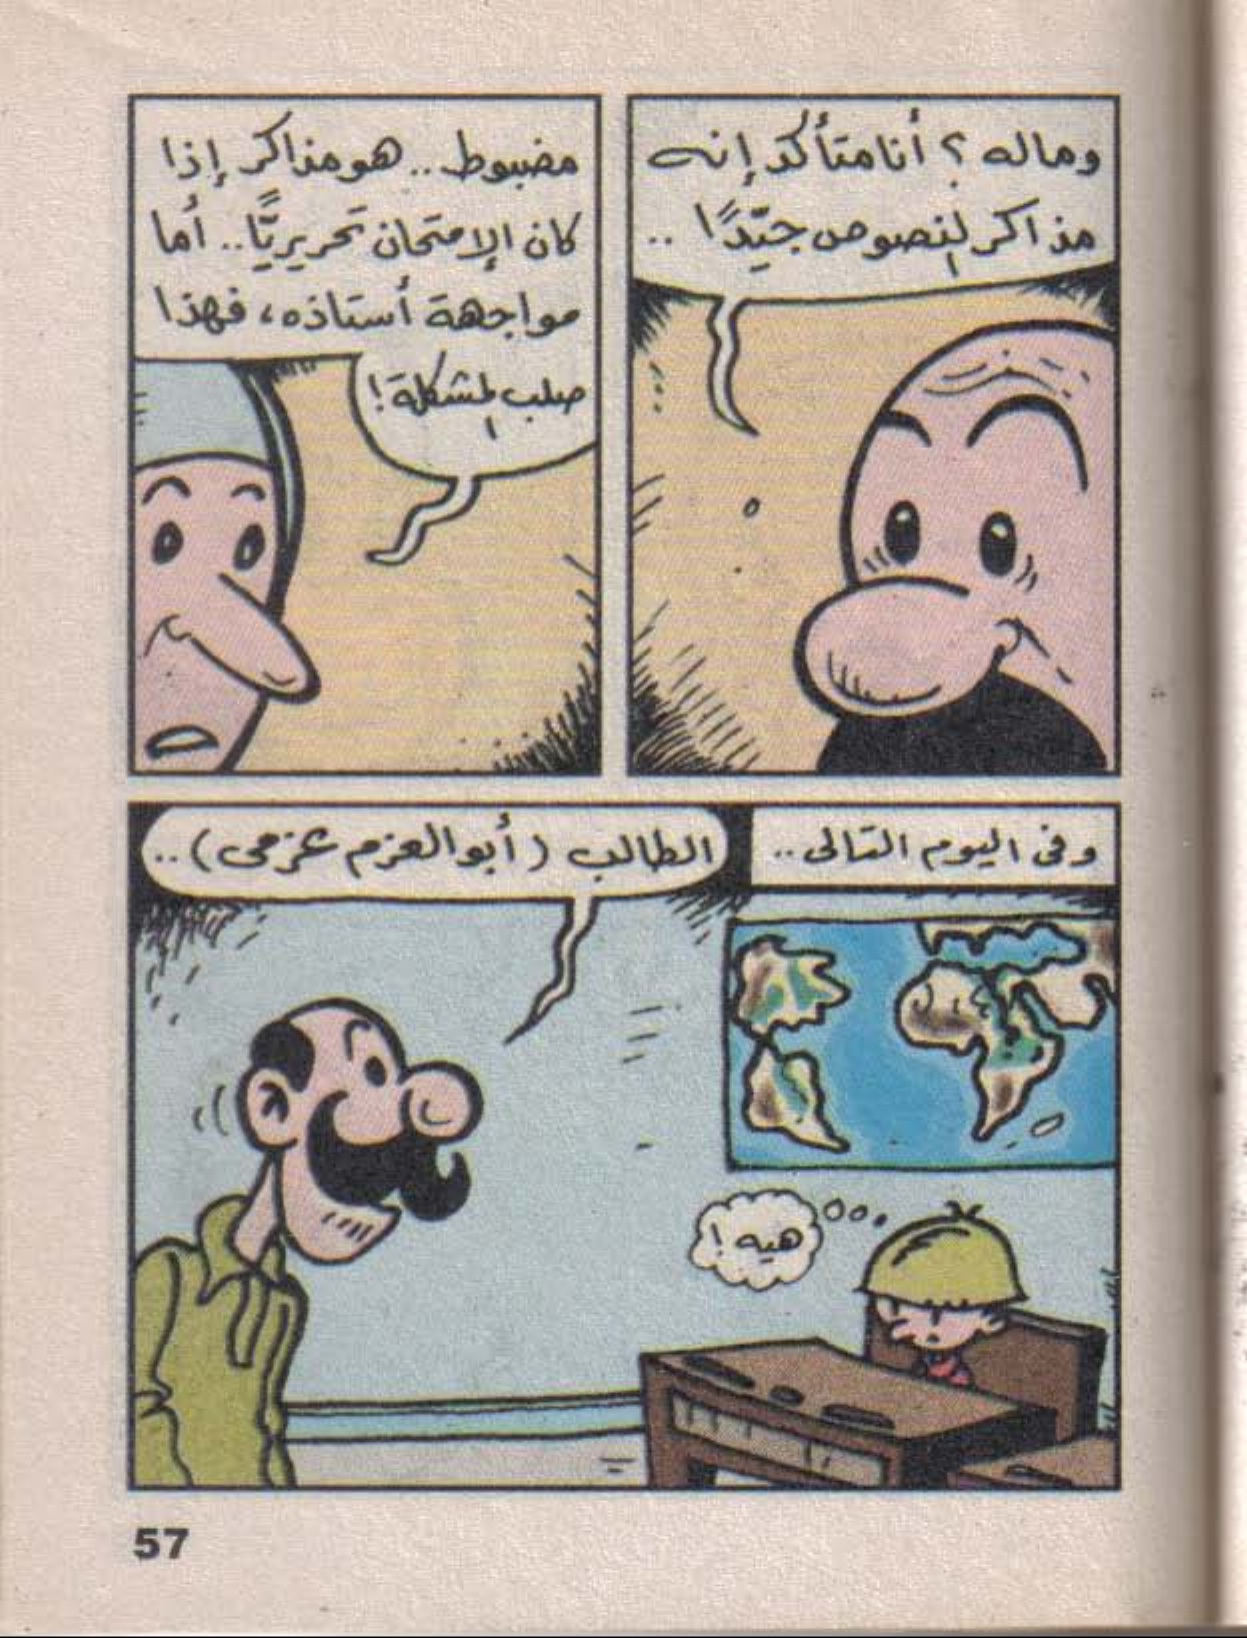 وماله ؟ أنا متأكد إنه
مذاكر النصوص جيّدًا ..
مضبوط .. هو مذاكر إذا
كان الإمتحان تحريريًّا .. أما
مواجهة أستاذه، فهذا
صلب المشكلة !
وفى اليوم التالى ..
الطالب ( أبو العزم عزمى ) ..
هيه !
57